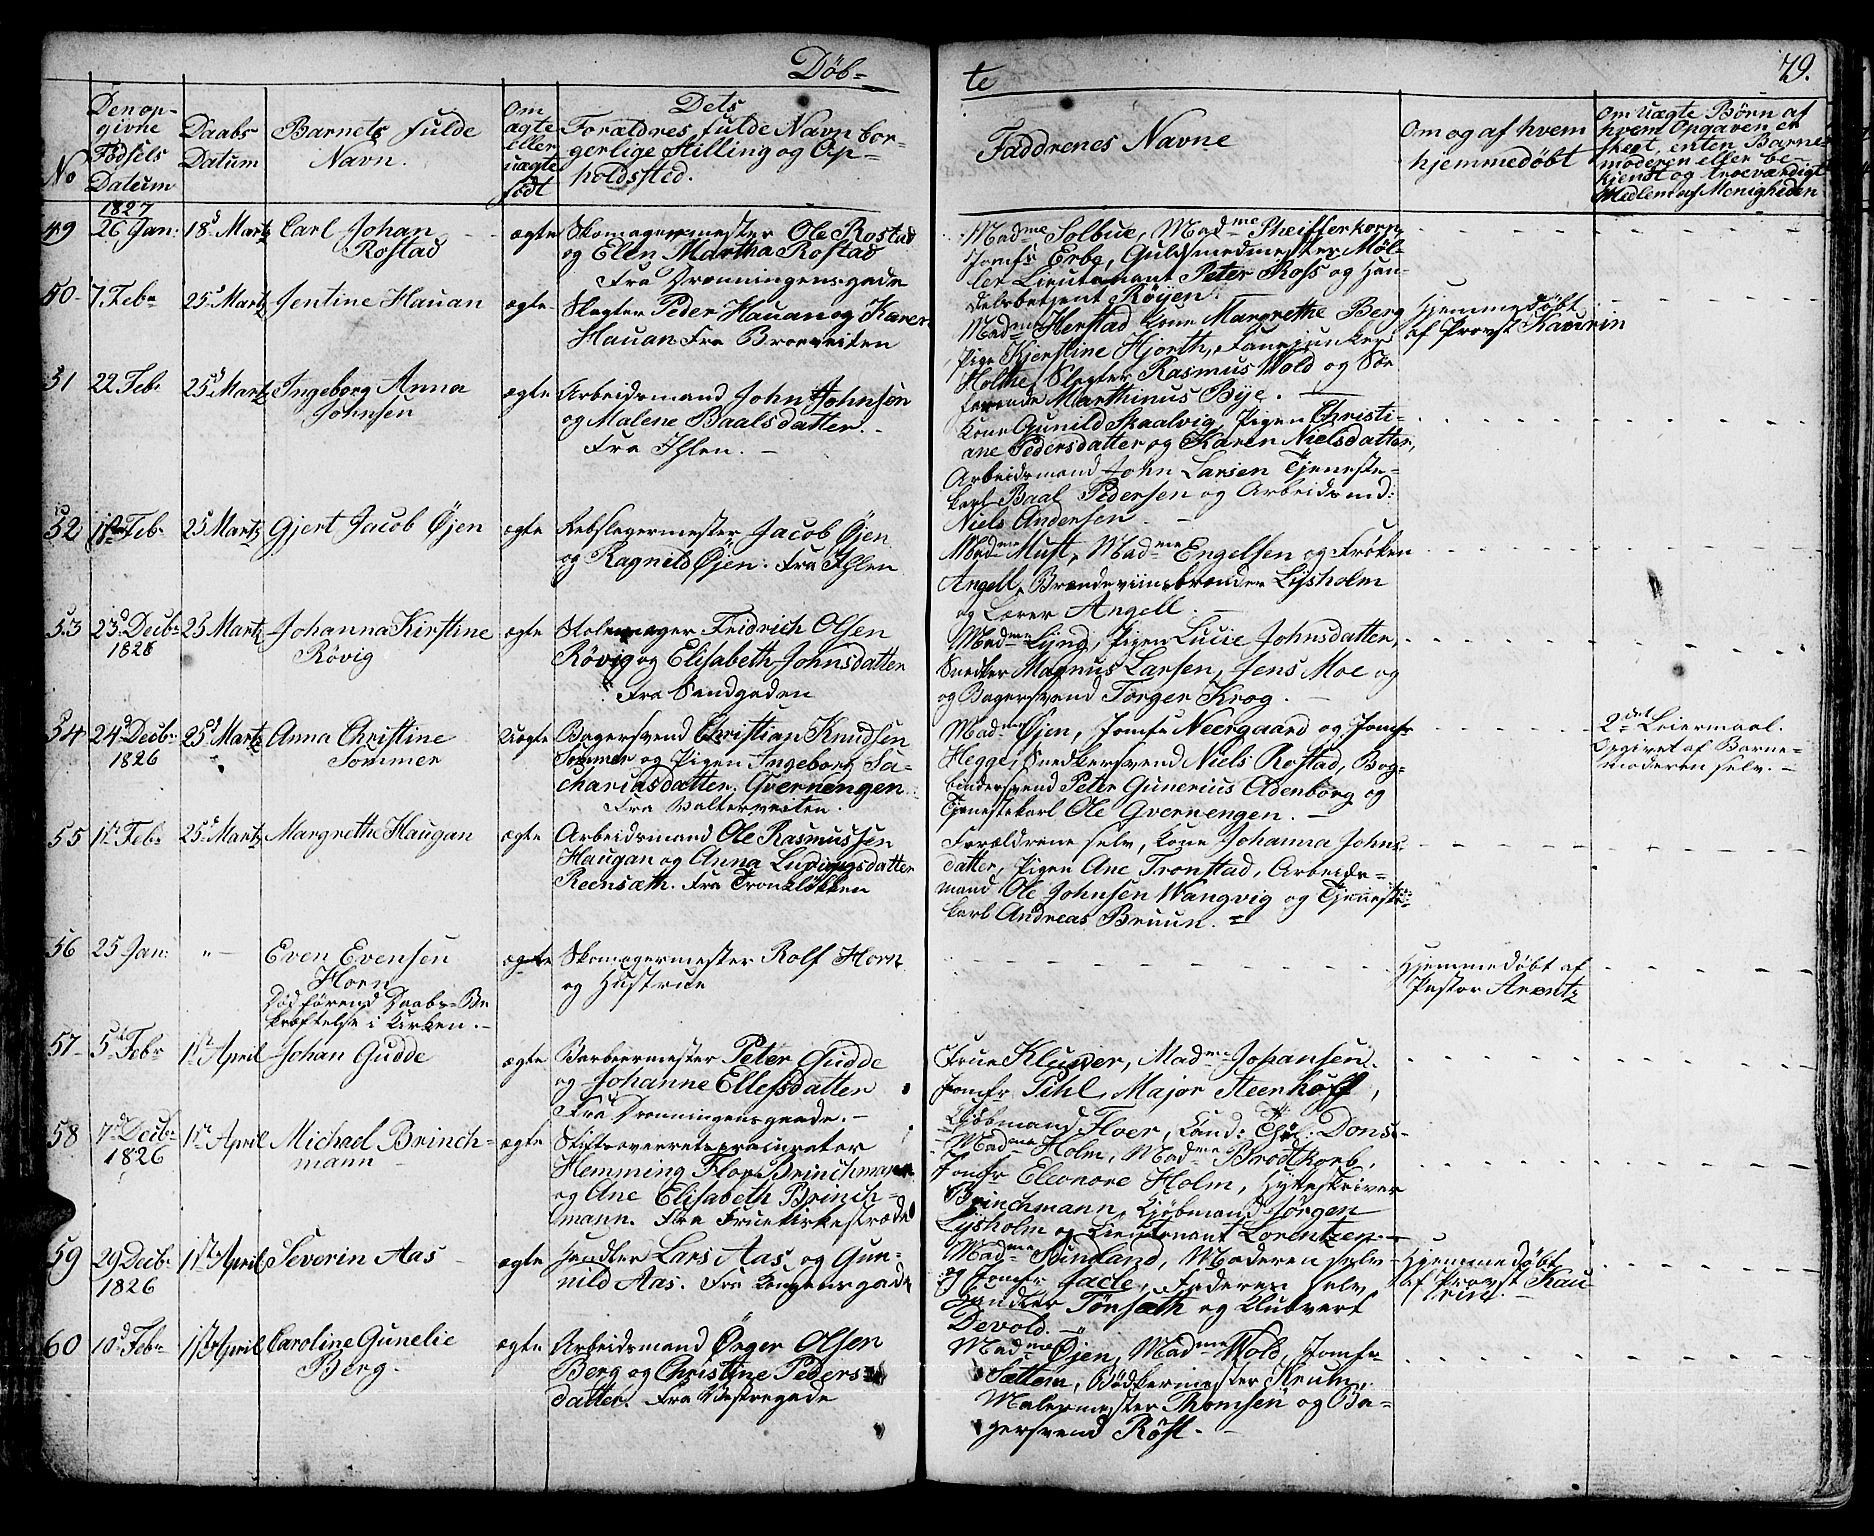 Døb-
te
79.
No
Den op-
givne
Fødsels
Datum
Daabs
Datum
Barnets fulde
Navn.
Om
ægte
eller
uægte
født
Dets
Forældres fulde Navn bor-
gerlige Stilling og Op-
holdssted.
Faddrenes Navne
Om og af hvem
hjemmedøbt
Om uægte Børn af
hvem Opgaven er
skeet, enten Barne-
moderen eller be-
kjendt og troeværdigt
Medlem af Menigheden
1827
49 26 Jan: 18 Martz Carl Johan
Rostad
ægte
Skomagermester Ole Rostad
og Elen Martha Rostad
Fra Dronningensgade
Madme Solbue, Madme Pheifferkorn
Jomfr Erbe, Guldsmedmester Møl-
ler Lieutenant Peter Ross og Han-
delsbetjent Røyen.
50 7. Febr 25 Martz Jentine Hauan
ægte
Slagter Peder Hauan og Karen
Hauan Fra Broeveiten
Madme Herstad Kone Margrethe Berg
Pige Kjerstine Hjorth, Fanejunker
Holthe, Slagter Rasmus Wold og Søe
farende Marthinus Bye.
Hjemmedøbt
af Provst Kaurin
51 22 Feb: 25 Martz Ingeborg Anna
Johnsen
ægte
Arbeidsmand John Johnson
og Malene Baalsdatter.
Fra Ihlen.
Kone Gunild Skaalvig, Pigen Christi-
ane Pedersdatter og Karen Nielsdatter,
Arbeidsmand John Larsen Tjeneste-
karl Baal Pedersen og Arbeidsmd:
Niels Andersen
52 Feb: 25 Martz Gjert Jacob Øjen
ægte
Rebslagermester Jacob Øjen
og Ragnild Øjen. Fra Ihlen
Madme Must, Madme Engelsen og Frøken
Angell, Brændeviinsbrænder Lysholm
og Lærer Angell.
53 23 Decbr 25 Martz Johanna Kirstine
Røvig
ægte
Stolemager Fridrich Olsen
Røvig og Elisabeth Johnsdatter
Fra Sandgaden
Madme Lyng, Pigen Lucie Johnsdatter,
Snedker Magnus Larsen, Jens Moe og
og Bagersvend Torger Krog.
54 24 Decbr 1826 25 Martz Anna Christine
Sommer
Uægte
Bagersvend Christian Knudsen
Sommer og Pigen Ingeborg Sa-
chariasdatter Gvernengen
Fra Valterveiten.
Madme Øjen, Jomfr Neergaard og Jomfr
Hegge, Snedkersvend Niels Rostad, Bog-
bindersvend Peter Gunerius Oldenborg og
Tjenestekarl Ole Gvernengen.
2det Leiermaal.
Opgivet af Barne-
moderen selv.
55 Feb: 25 Martz Margrethe Haugan
ægte
Arbeidsmand Ole Rasmussen
Haugan og Anna Ludvigsdatter
Reensath. Fra Tronkløkken
Forældrene selv, Kone Johanna Johns-
datter, Pigen Ane Tronstad, Arbeids-
mand Ole Johnsen Wangvig og Tjeneste-
karl Andreas Bruun.
56 25 Jan: "
Even Evensen
Horn
Død førend Daabs-Be
kræftelse i Kirken.
ægte
Skomagermester Rolf Horn
og Hustrue
Hjemmedøbt af
Pastor Arentz
57 5 Febr 1ste April Johan Gudde
ægte
Barbeermester Peter Gudde
og Johanne Ellefsdatter
Fra Dronningensgaade.
Frue Kluwer, Madme Johansen,
Jomfr Sihl, Major Steenhoff,
Kjøbmand Floer, Cand: Thol: Dons
58 7 Decbr 1826 1ste April Michael Brinch-
mann
ægte
Stiftsoverretsprocurator
Hemming Flor Brinchmann
og Ane Elisabeth Brinch-
mann. Fra Fruekirkestræde
Madme Holm, Madme Brodtkorb,
Jomfr Eleonore Holm, Hytteskriver
Brinchmann, Kjøbmand Jørgen
Lysholm og Lieutenant Lorentzen
59 29 Decbr 1826 1ste April Severin Aas
ægte
Handler Lars Aas og Gun-
nild Aas. Fra Kongensgade
Madme Sundland, Moderen selv
og Jomfr Jacle, Faderen selv
Handler Tønseth og Klubvert
Devold.
Hjemmedøbt
af Provst Kau
rin.
60 10 Febr 1ste April Caroline Gunelie
Berg.
ægte
Arbeidsmand Ørger Olsen
Berg og Christine Peders-
datter. Fra Vestregade
Madme Øjen, Madme Wold, Jomfr
Sættem, Bødkermester Krum,
Malermester Thomsen og Ba-
gersvend Röst.